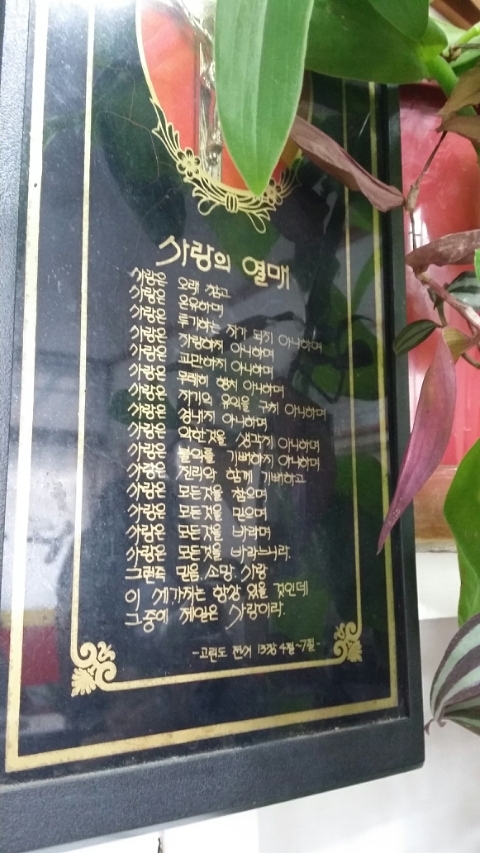 사랑의 열매
사랑은 오래 참고
사랑은 온유하며
사랑은 투기하는 자가 되지 아니하며
사랑은 자랑하지 아니하며
사랑은 교만하지 아니하며
사랑은 무례히 행치 아니하며
사랑은 자기의 유익을 구치 아니하며
사랑은 성내지 아니하며
사랑은 악한것을 생각지 아니하며
사랑은 불의를 기뻐하지 아니하며
사랑은 진리와 함께 기뻐하고
사랑은 모든것을 참으며
사랑은 모든것을 믿으며
사랑은 모든것을 바라며
사랑은 모든것을 바라느니라.
그런즉 믿음, 소망, 사랑
이 세가지는 항상 있을 것인데
그중에 제일은 사랑이라.
-고린도 전서 13장 4절~7절-